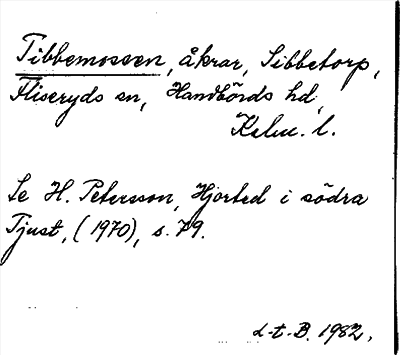 Tibbemossen, åkrar, Sibbetorp,
Fliseryds sn, Handbörds hd,
Kalm. l.
Se H. Petersson, Hjorted i södra
Tjust, (1970), s. 79.
L-t-B. 1982,